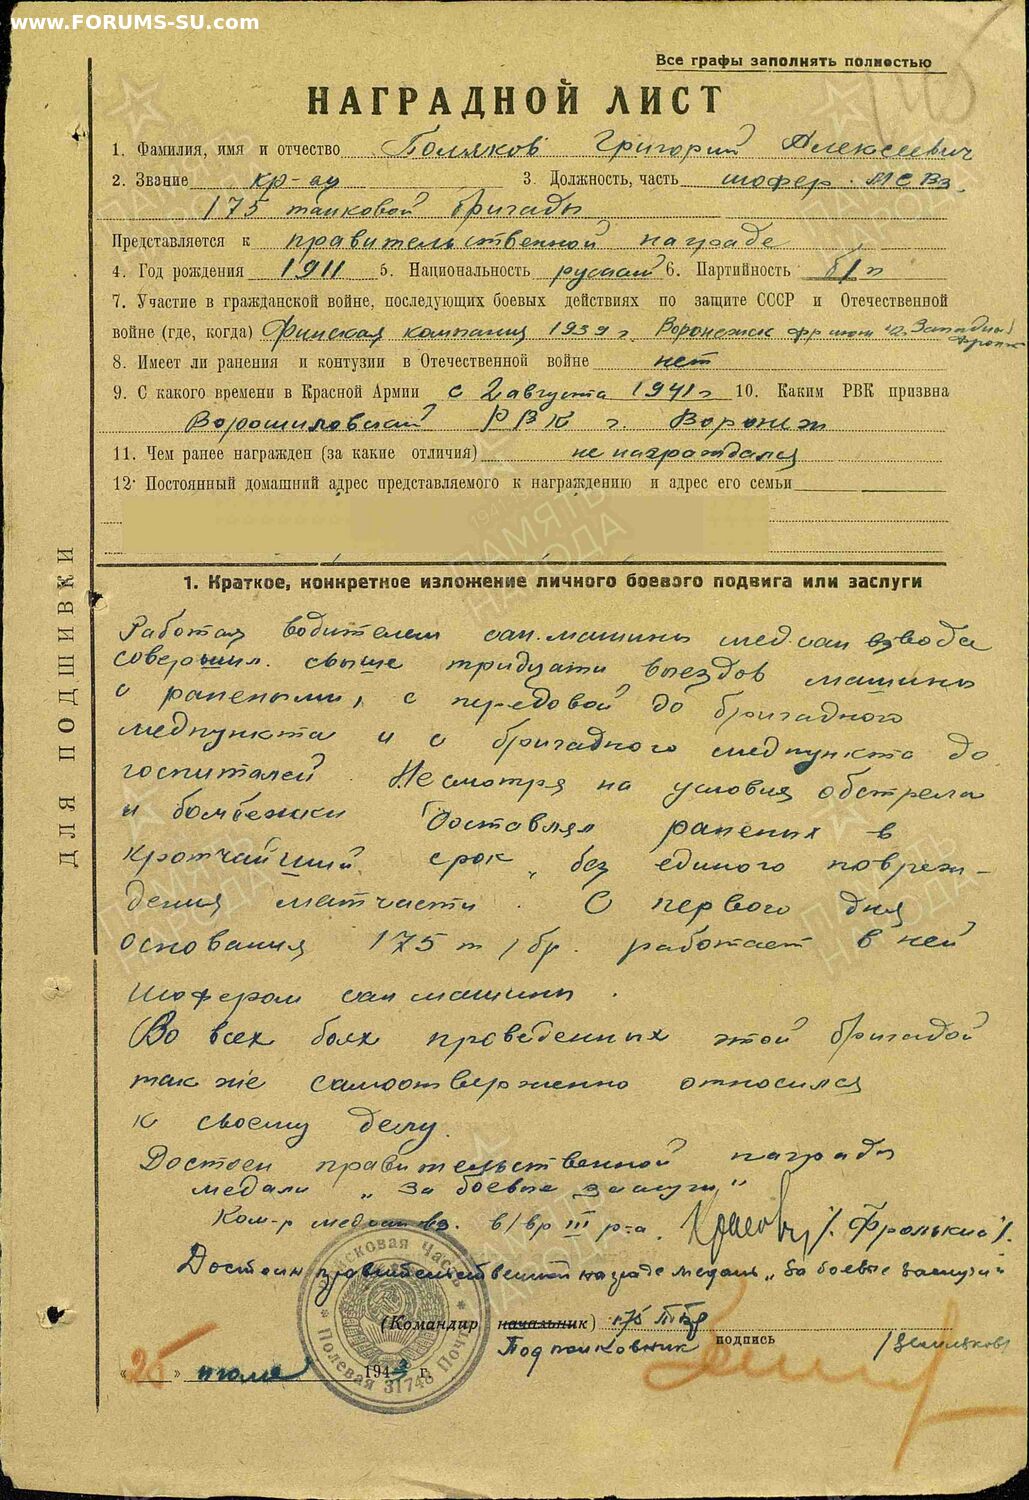 www.FORUMS-SU.com
Все графы заполнять полностью
НАГРАДНОЙ ЛИСТ
1. Фамилия, имя и отчество Поляков Григорий Алексеевич
2. Звание кр-ац 3. Должность, часть шофер МСВз.
175 танковой бригады
Представляется к правительственной награде
4. Год рождения 1911 5. Национальность руский 6. Партийность б/п
7. Участие в гражданской войне, последующих боевых действиях по защите СССР и Отечественной
войне (где, когда) Финская компания 1939 г. Воронежск фр Западный
фронт
8. Имеет ли ранения и контузии в Отечественной войне нет
9. С какого времени в Красной Армии с 2 августа 1941 г 10. Каким РВК призван
Ворошиловский РВК г. Воронеж
11. Чем ранее награжден (за какие отличия) не награждался
12. Постоянный домашний адрес представляемого к награждению и адрес его семьи
ДЛЯ ПОДШИВКИ
1. Краткое, конкретное изложение личного боевого подвига или заслуги
Работая водителем сан. машины мед. сан взвода
совершил свыше тридцати выездов машины
с ранеными, с передовой до бригадного
медпункта и с бригадного медпункта до
госпиталей. Несмотря на условия обстрела
и бомбежки доставлял раненых в
кротчайший срок, без единого повреж-
дения матчасти. С первого дня
основания 175 т/бр. работает в ней
шофером сан машины.
Во всех боях проведенных этой бригадой
так же самоотверженно относился
к своему делу.
Достоен правительственной награды
медали „За боевые заслуги"
Ком-р медсанвз. в/вр III р-а. /Фролькис/.
Достоин правительственной награде медаль „За боевые заслуги"
(Командир начальник) 175 ТБр
Подполковник подпись
«25» июля 1943 г.
Войсковая Часть * Полевая Почта 31748 *
ПАМЯТЬ
НАРОДА